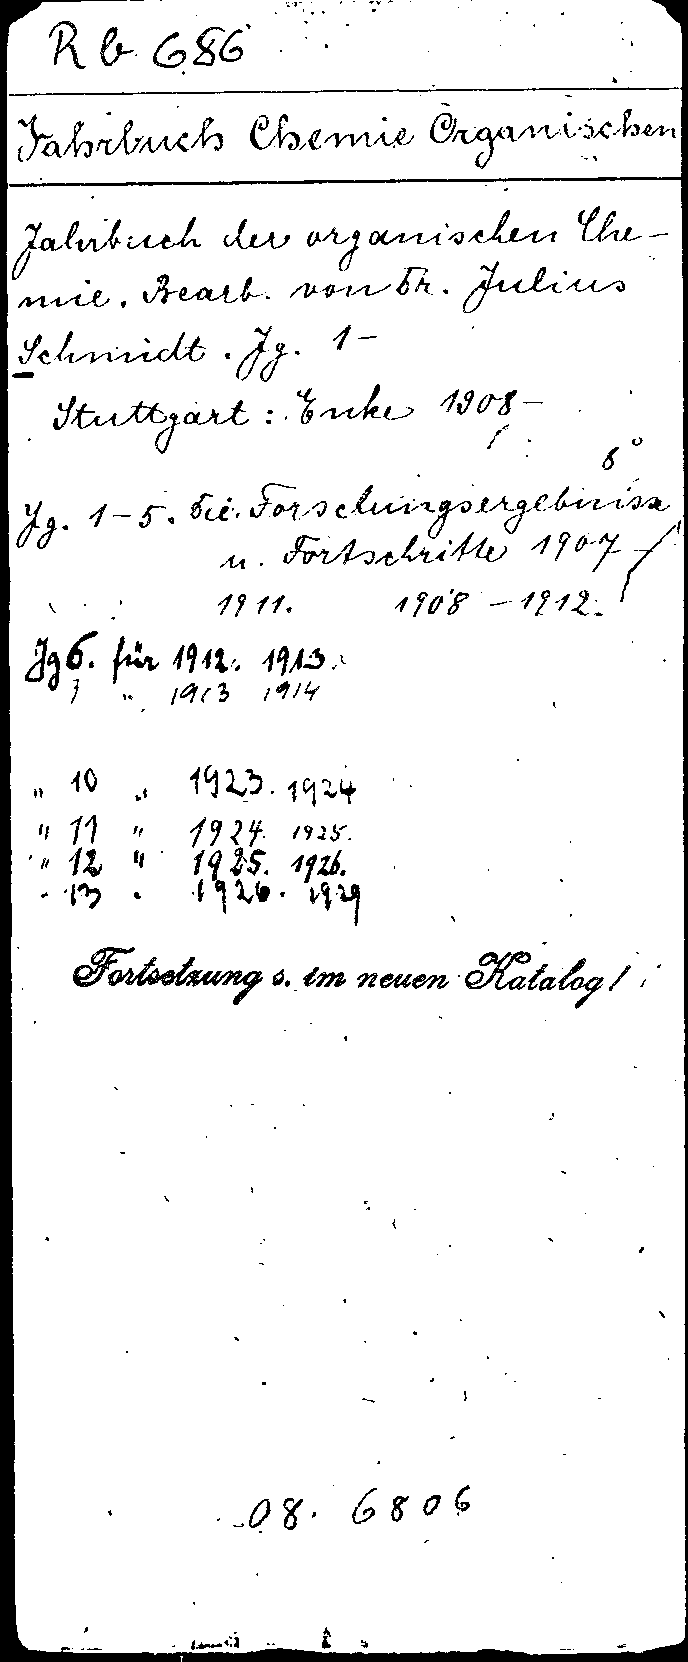 Rb 686
Jahrbuch Chemie Organischen
Jahrbuch der organischen Che-
mie. Bearb. von Dr. Julius
Schmidt. Jg. 1-
Stuttgart: Enke 1908-
8°
Jg. 1-5. Die Forschungsergebnisse
u. Fortschritte 1907-
1911. 1908-1912.
Jg 6. für 1912. 1913.
7 " 1913 1914
" 10 " 1923. 1924
" 11 " 1924. 1925.
" 12 " 1925. 1926.
" 13 " 1926. 1929
Fortsetzung s. im neuen Katalog!
08. 6806